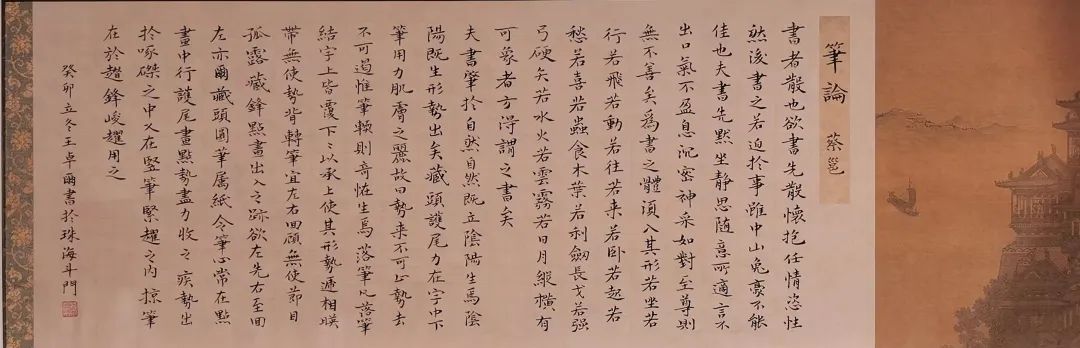 筆論
蔡邕
書者散也欲書先散懷抱任情恣性
然後書之若迫於事雖中山兔豪不能
佳也夫書先默坐靜思隨意所適言不
出口氣不盈息沉密神采如對至尊則
無不善矣為書之體須入其形若坐若
行若飛若動若往若来若卧若起若
愁若喜若蟲食木葉若利劒長戈若强
弓硬矢若水火若雲霧若日月縱橫有
可象者方得謂之書矣
夫書肇於自然自然既立陰陽生焉陰
陽既生形勢出矣藏頭護尾力在字中下
筆用力肌膚之麗故曰勢来不可止勢去
不可遏惟筆輭則奇怪生焉落筆凡落筆
結字上皆覆下〻以承上使其形勢遞相暎
帶無使勢背轉筆宜左右回顧無使節目
孤露藏鋒點畫出入之跡欲左先右至回
左亦爾藏頭圓筆属紙令筆心常在點
畫中行護尾畫點勢盡力收之疾勢出
於啄磔之中又在竪筆緊趯之内掠筆
在於趲鋒峻趯用之
癸卯立冬王卓爾書於珠海斗門